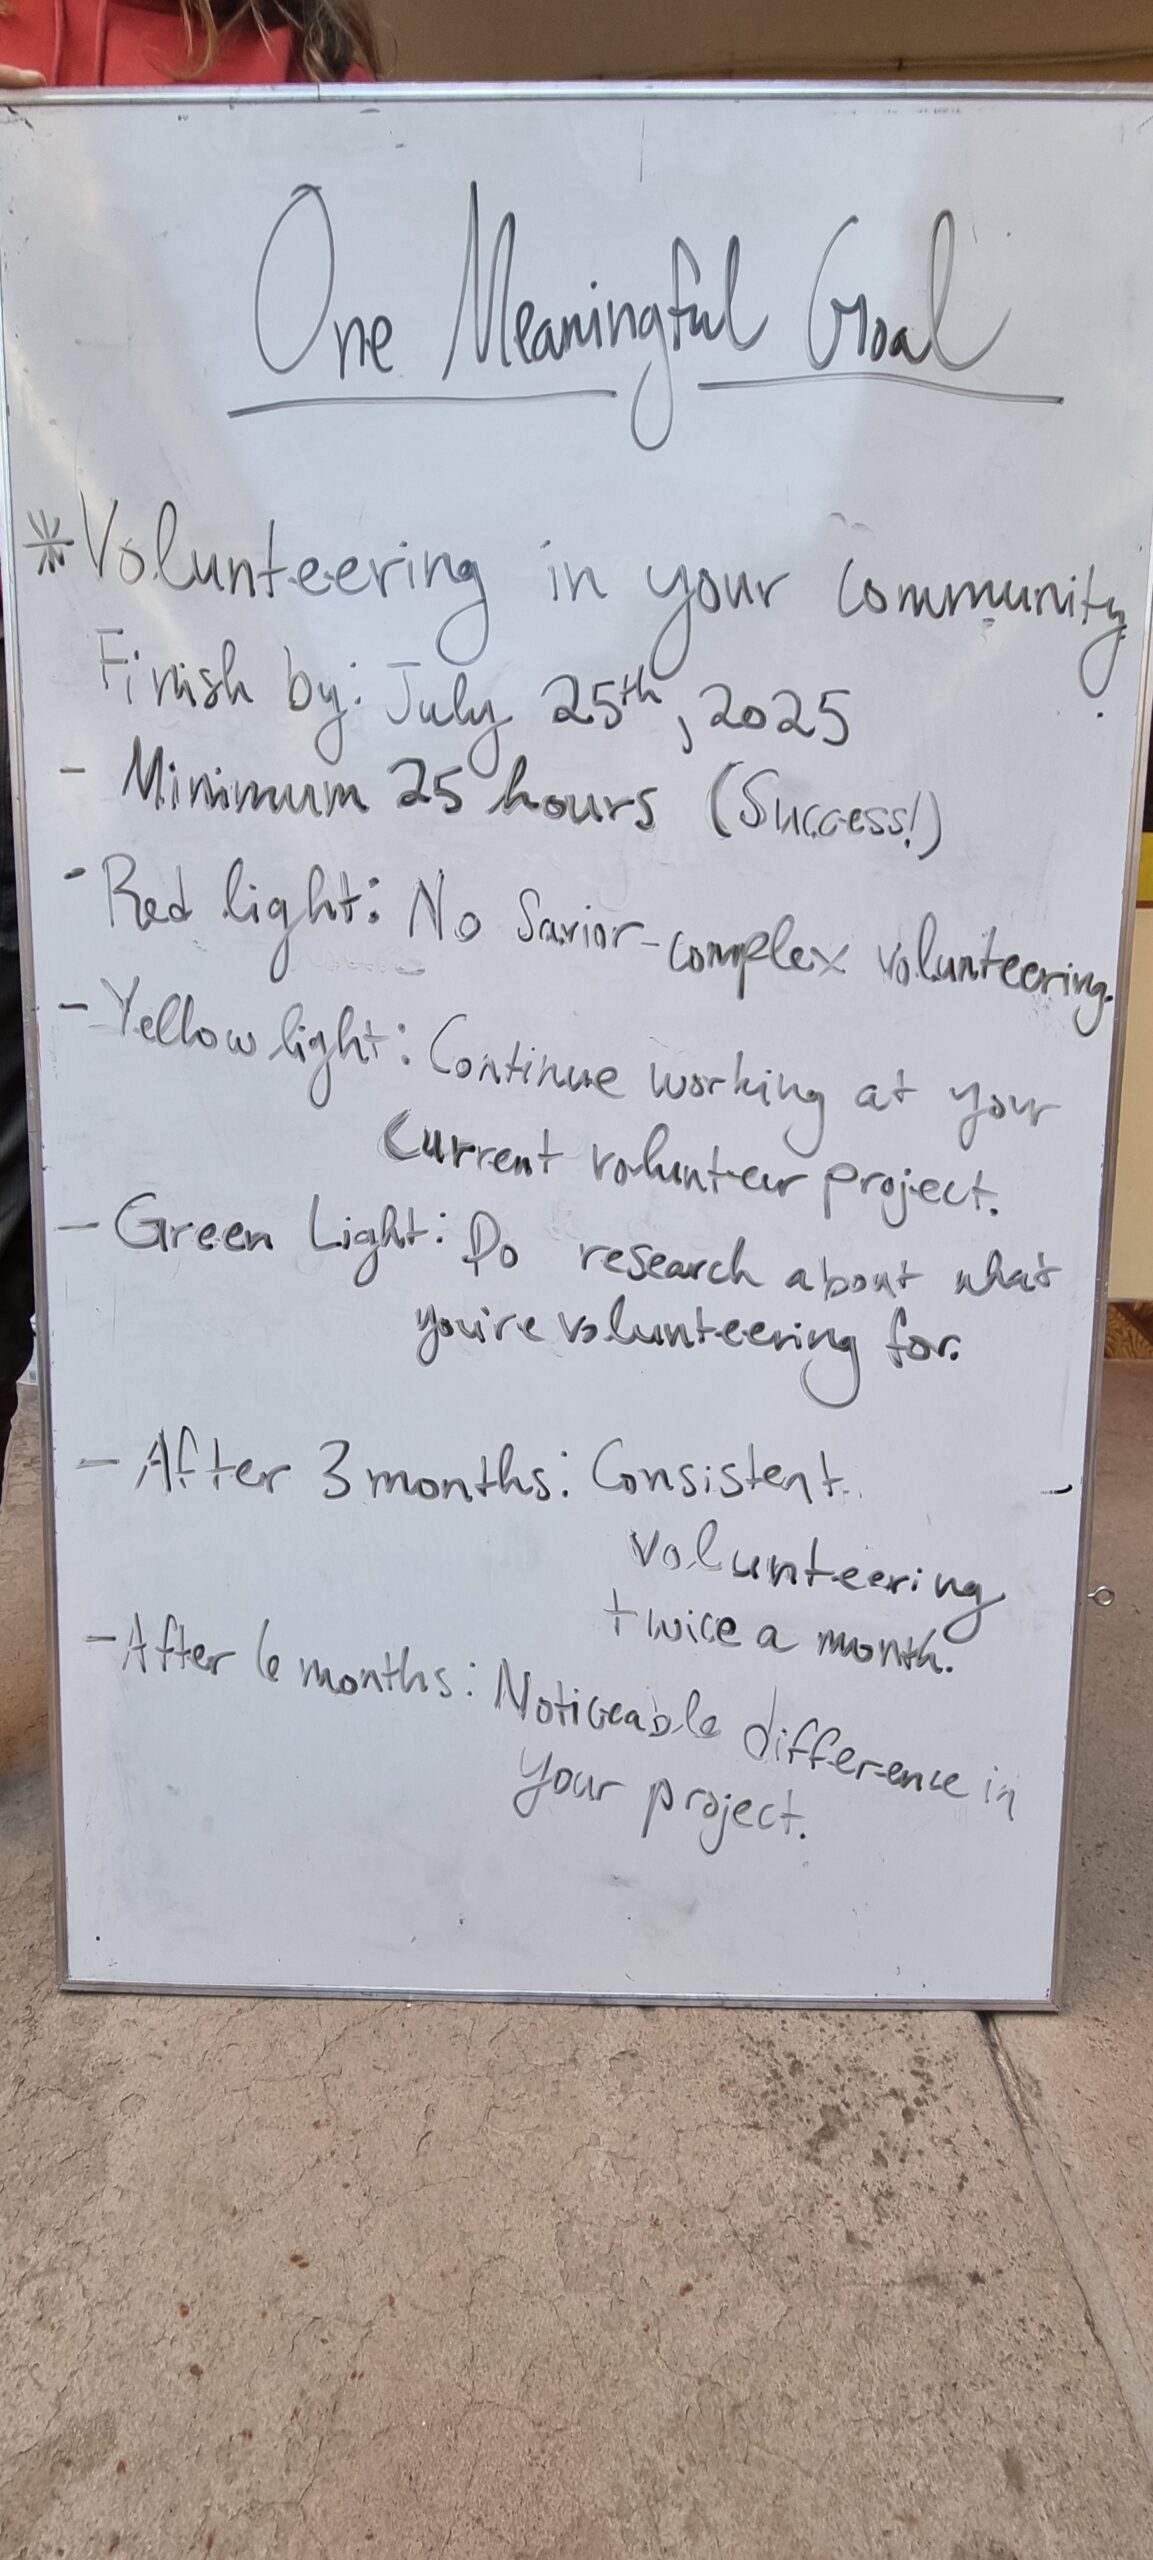 One Meaningful Goal
* Volunteering in your community.
Finish by: July 25th, 2025
- Minimum 25 hours (Success!)
- Red light: No Savior-complex volunteering.
- Yellow light: Continue working at your
current volunteer project.
- Green Light: Do research about what
you're volunteering for.
- After 3 months: Consistent
volunteering
twice a month.
- After 6 months: Noticeable difference in
your project.